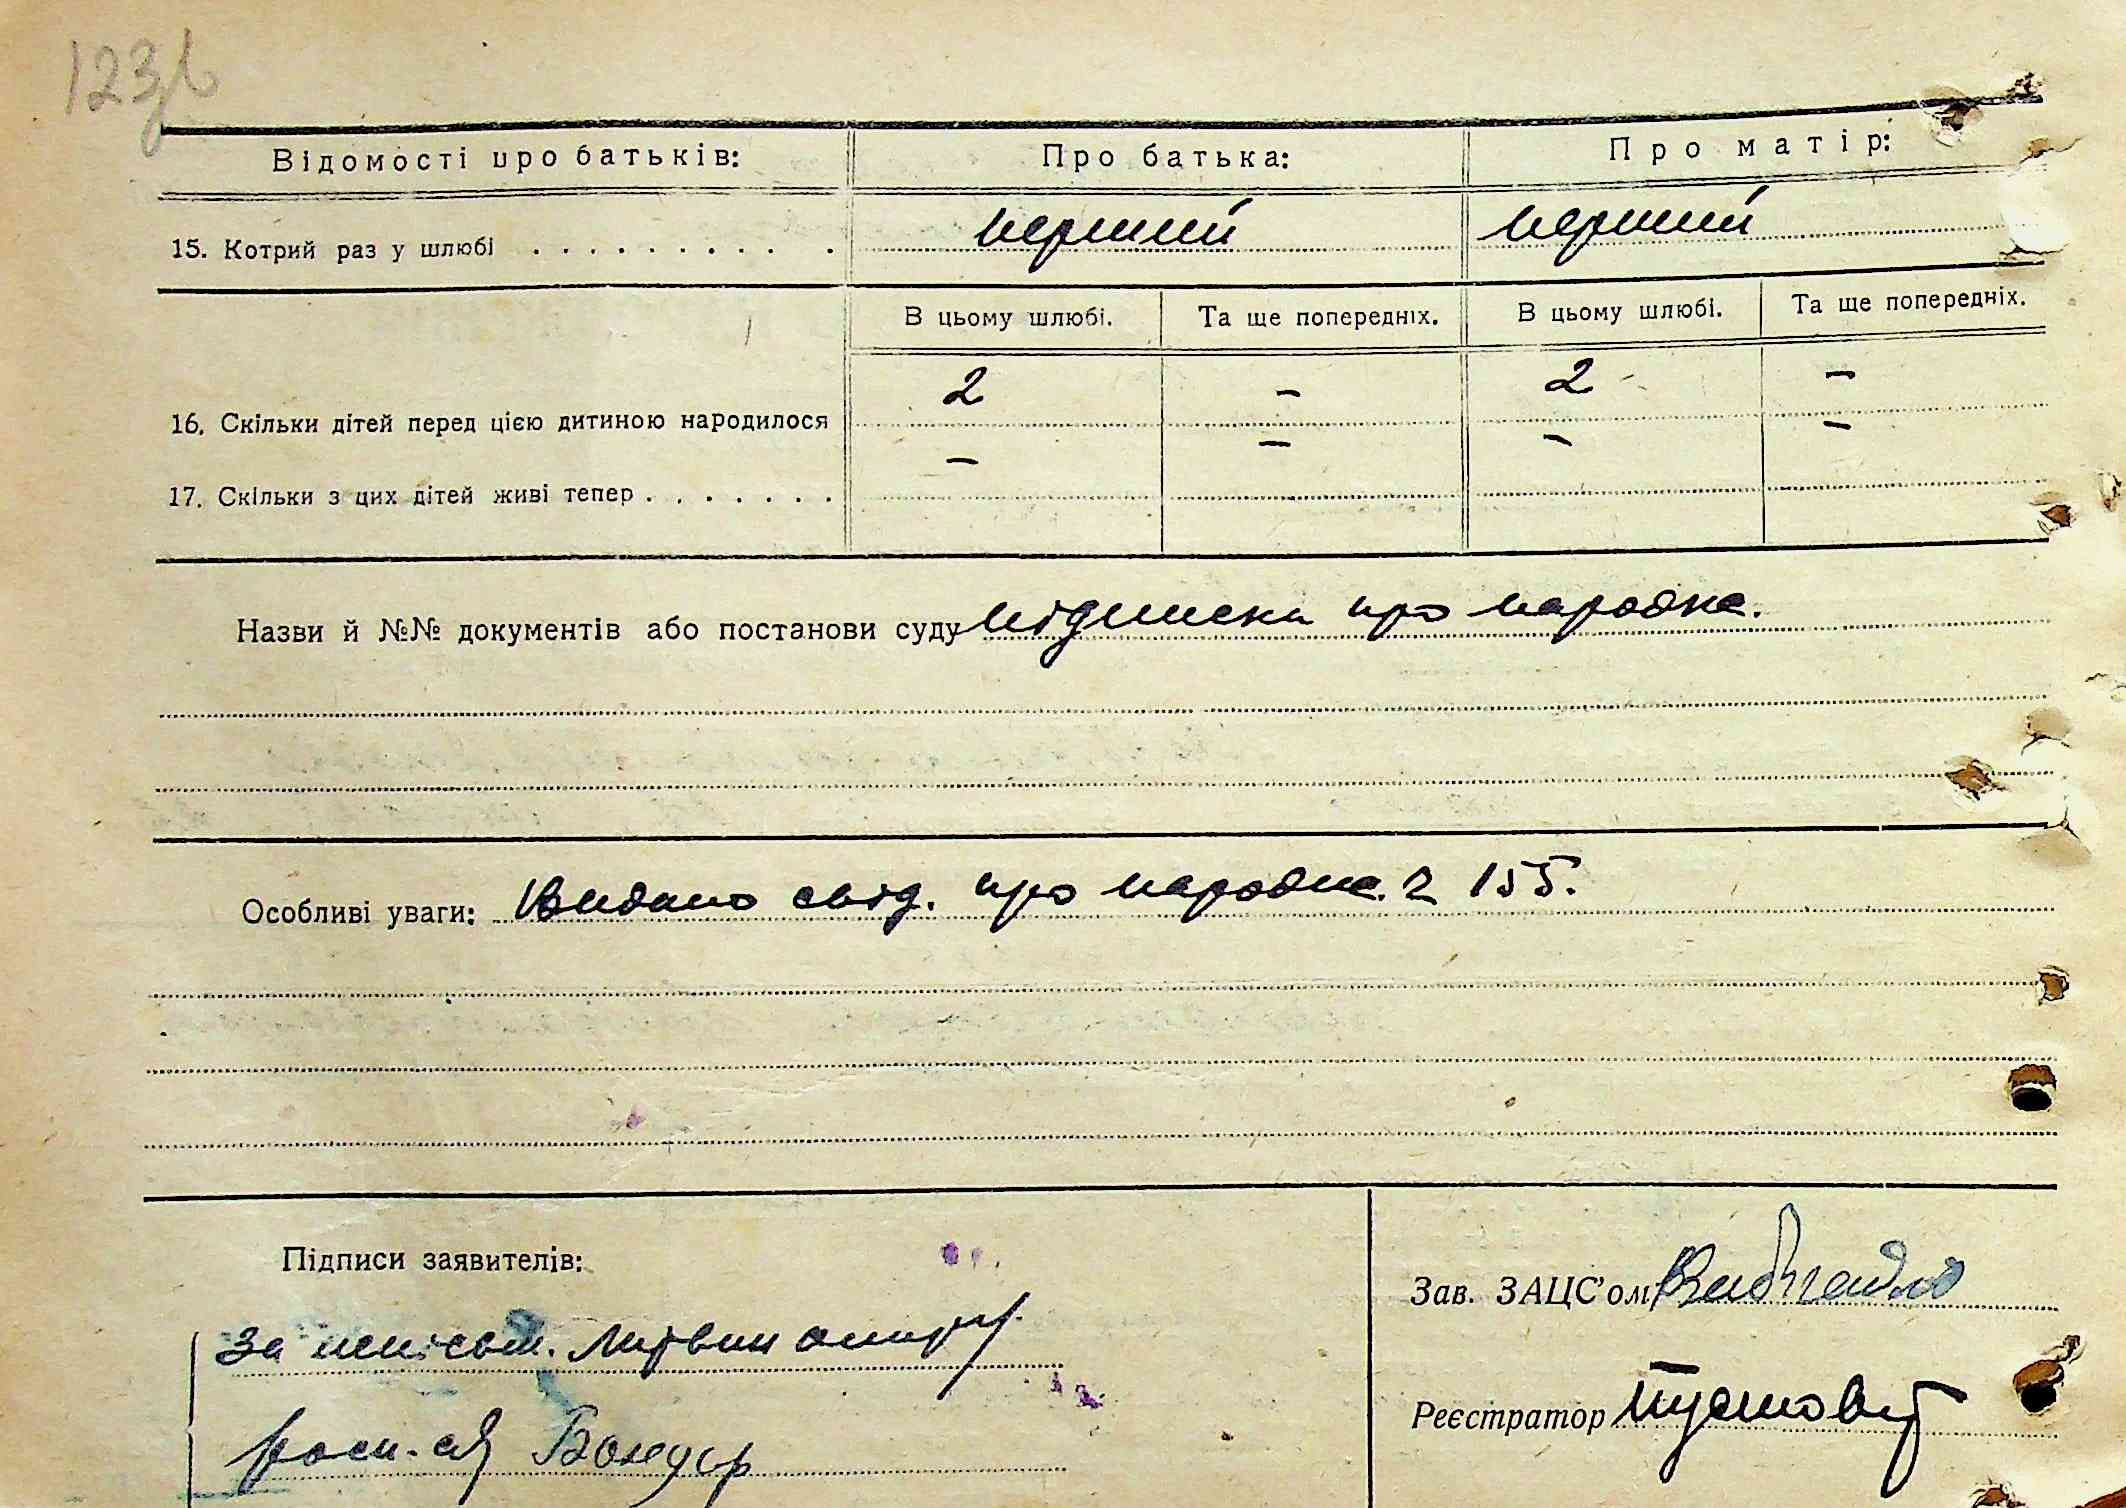 123в
Відомості про батьків: Про батька: Про матір:
15. Котрий раз у шлюбі . . . . . . . . . . перший перший
В цьому шлюбі. Та ще попередніх. В цьому шлюбі. Та ще попередніх.
16. Скільки дітей перед цією дитиною народилося 2 - 2 -
17. Скільки з цих дітей живі тепер . . . . . . . - - - -
Назви й №№ документів або постанови суду підписка про народже.
Особливі уваги: Видано свід. про народже. 2 155.
Підписи заявителів:
Зав. ЗАЦС'ом
за неписьм. Литвин
Реєстратор Пустовіт
росп-ся Бондар